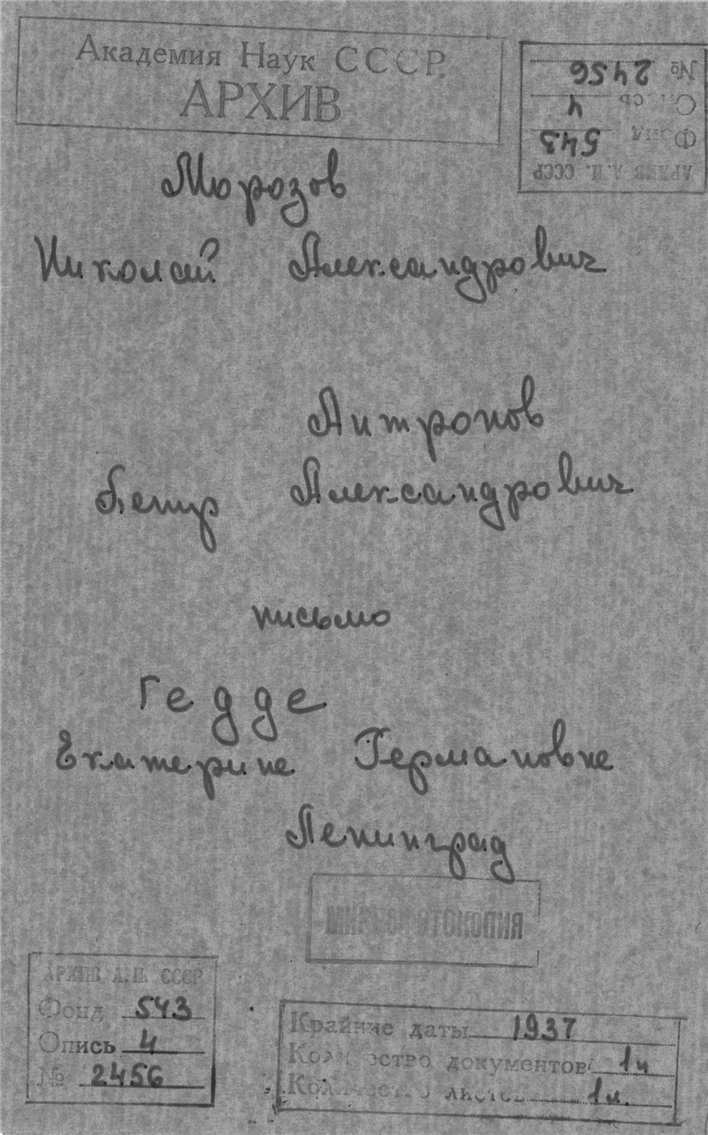 Академия Наук СССР
АРХИВ
№ 2456
Опись 4
Фонд 543
АРХИВ А.Н. СССР
Морозов
Николай Александрович
Антропов
Петр Александрович
письмо
Гедде
Екатерине Германовне
Ленинград
МИКРОФОТОКОПИЯ
АРХИВ А.Н. СССР
Фонд 543
Опись 4
№ 2456
Крайние даты 1937
Количество документов 1
Количество листов 1 л.